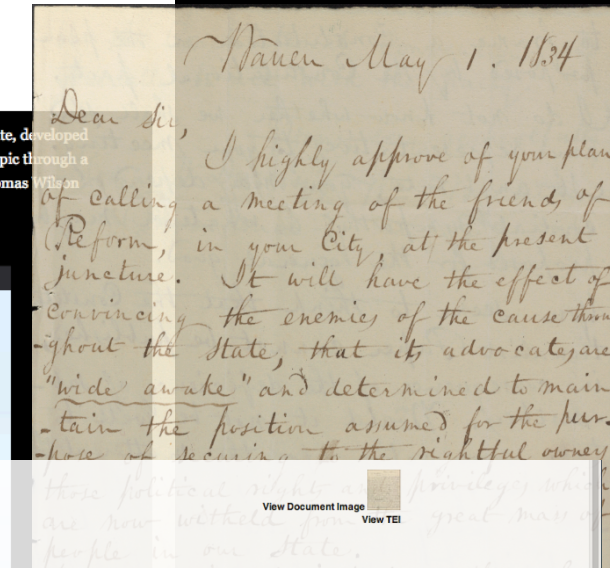 Warren May 1. 1834
Dear Sir,
I highly approve of your plan
of calling a meeting of the friends of
Reform, in your City, at the present
juncture. It will have the effect of
convincing the enemies of the cause throu
-ghout the State, that its advocates are
"wide awake" and determined to main
-tain the position assumed for the pur-
-pose of securing to the rightful owners
those political rights and privileges which
are now witheld from the great mass of
people in our State.
te, developed
pic through a
omas Wilson
View Document Image
View TEI